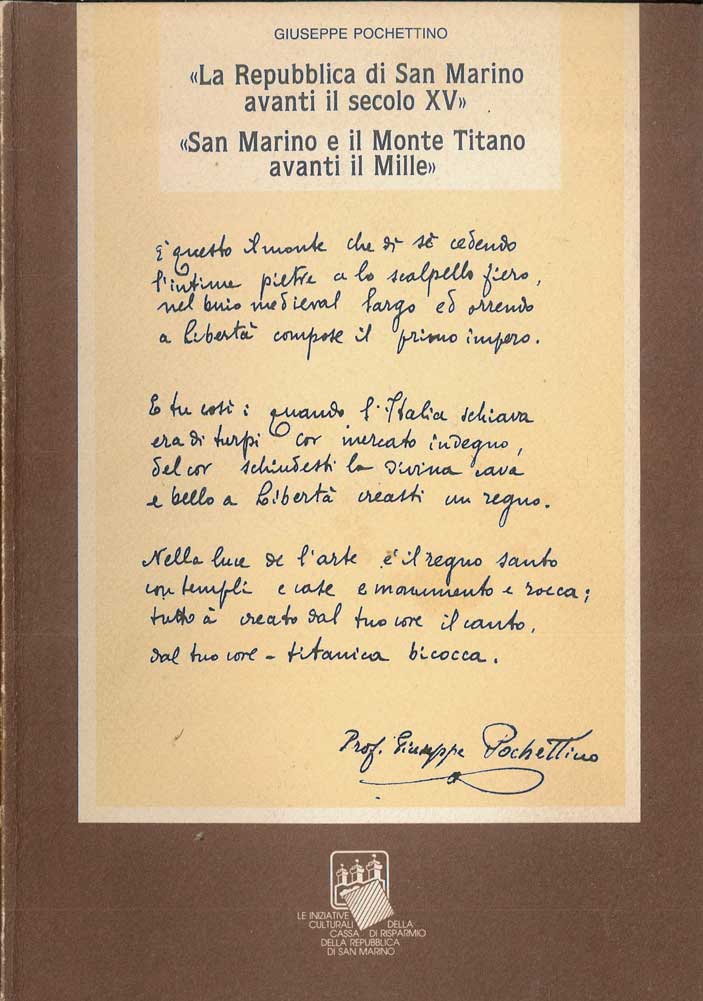 GIUSEPPE POCHETTINO
«La Repubblica di San Marino
avanti il secolo XV»
«San Marino e il Monte Titano
avanti il Mille»
È questo il monte che di sè cedendo
l'intime pietre a lo scalpello fiero,
nel buio medieval largo ed orrendo
a Libertà compose il primo impero.
E tu così: quando l'Italia schiava
era di turpi cor mercato indegno,
del cor schiudesti la divina cava
e bello a Libertà creasti un regno.
Nella luce de l'arte è il regno santo
con templi e case e monumento e rocca;
tutto à creato dal tuo core il canto,
dal tuo core - titanica bicocca.
Prof. Giuseppe Pochettino
LE INIZIATIVE
CULTURALI DELLA
CASSA DI RISPARMIO
DELLA REPUBBLICA
DI SAN MARINO